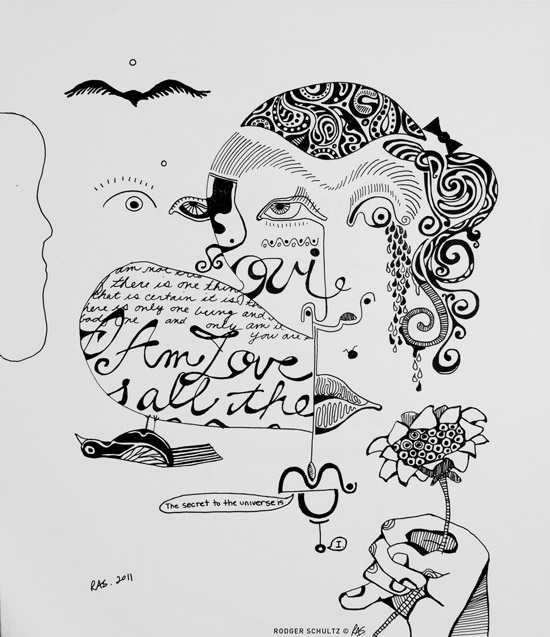 am not
there is one thing
that is certain it is
here is only one being and
one and only am i
you are
I Am Love
s all the
The secret to the universe is
I
RAS. 2011
RODGER SCHULTZ © RAS